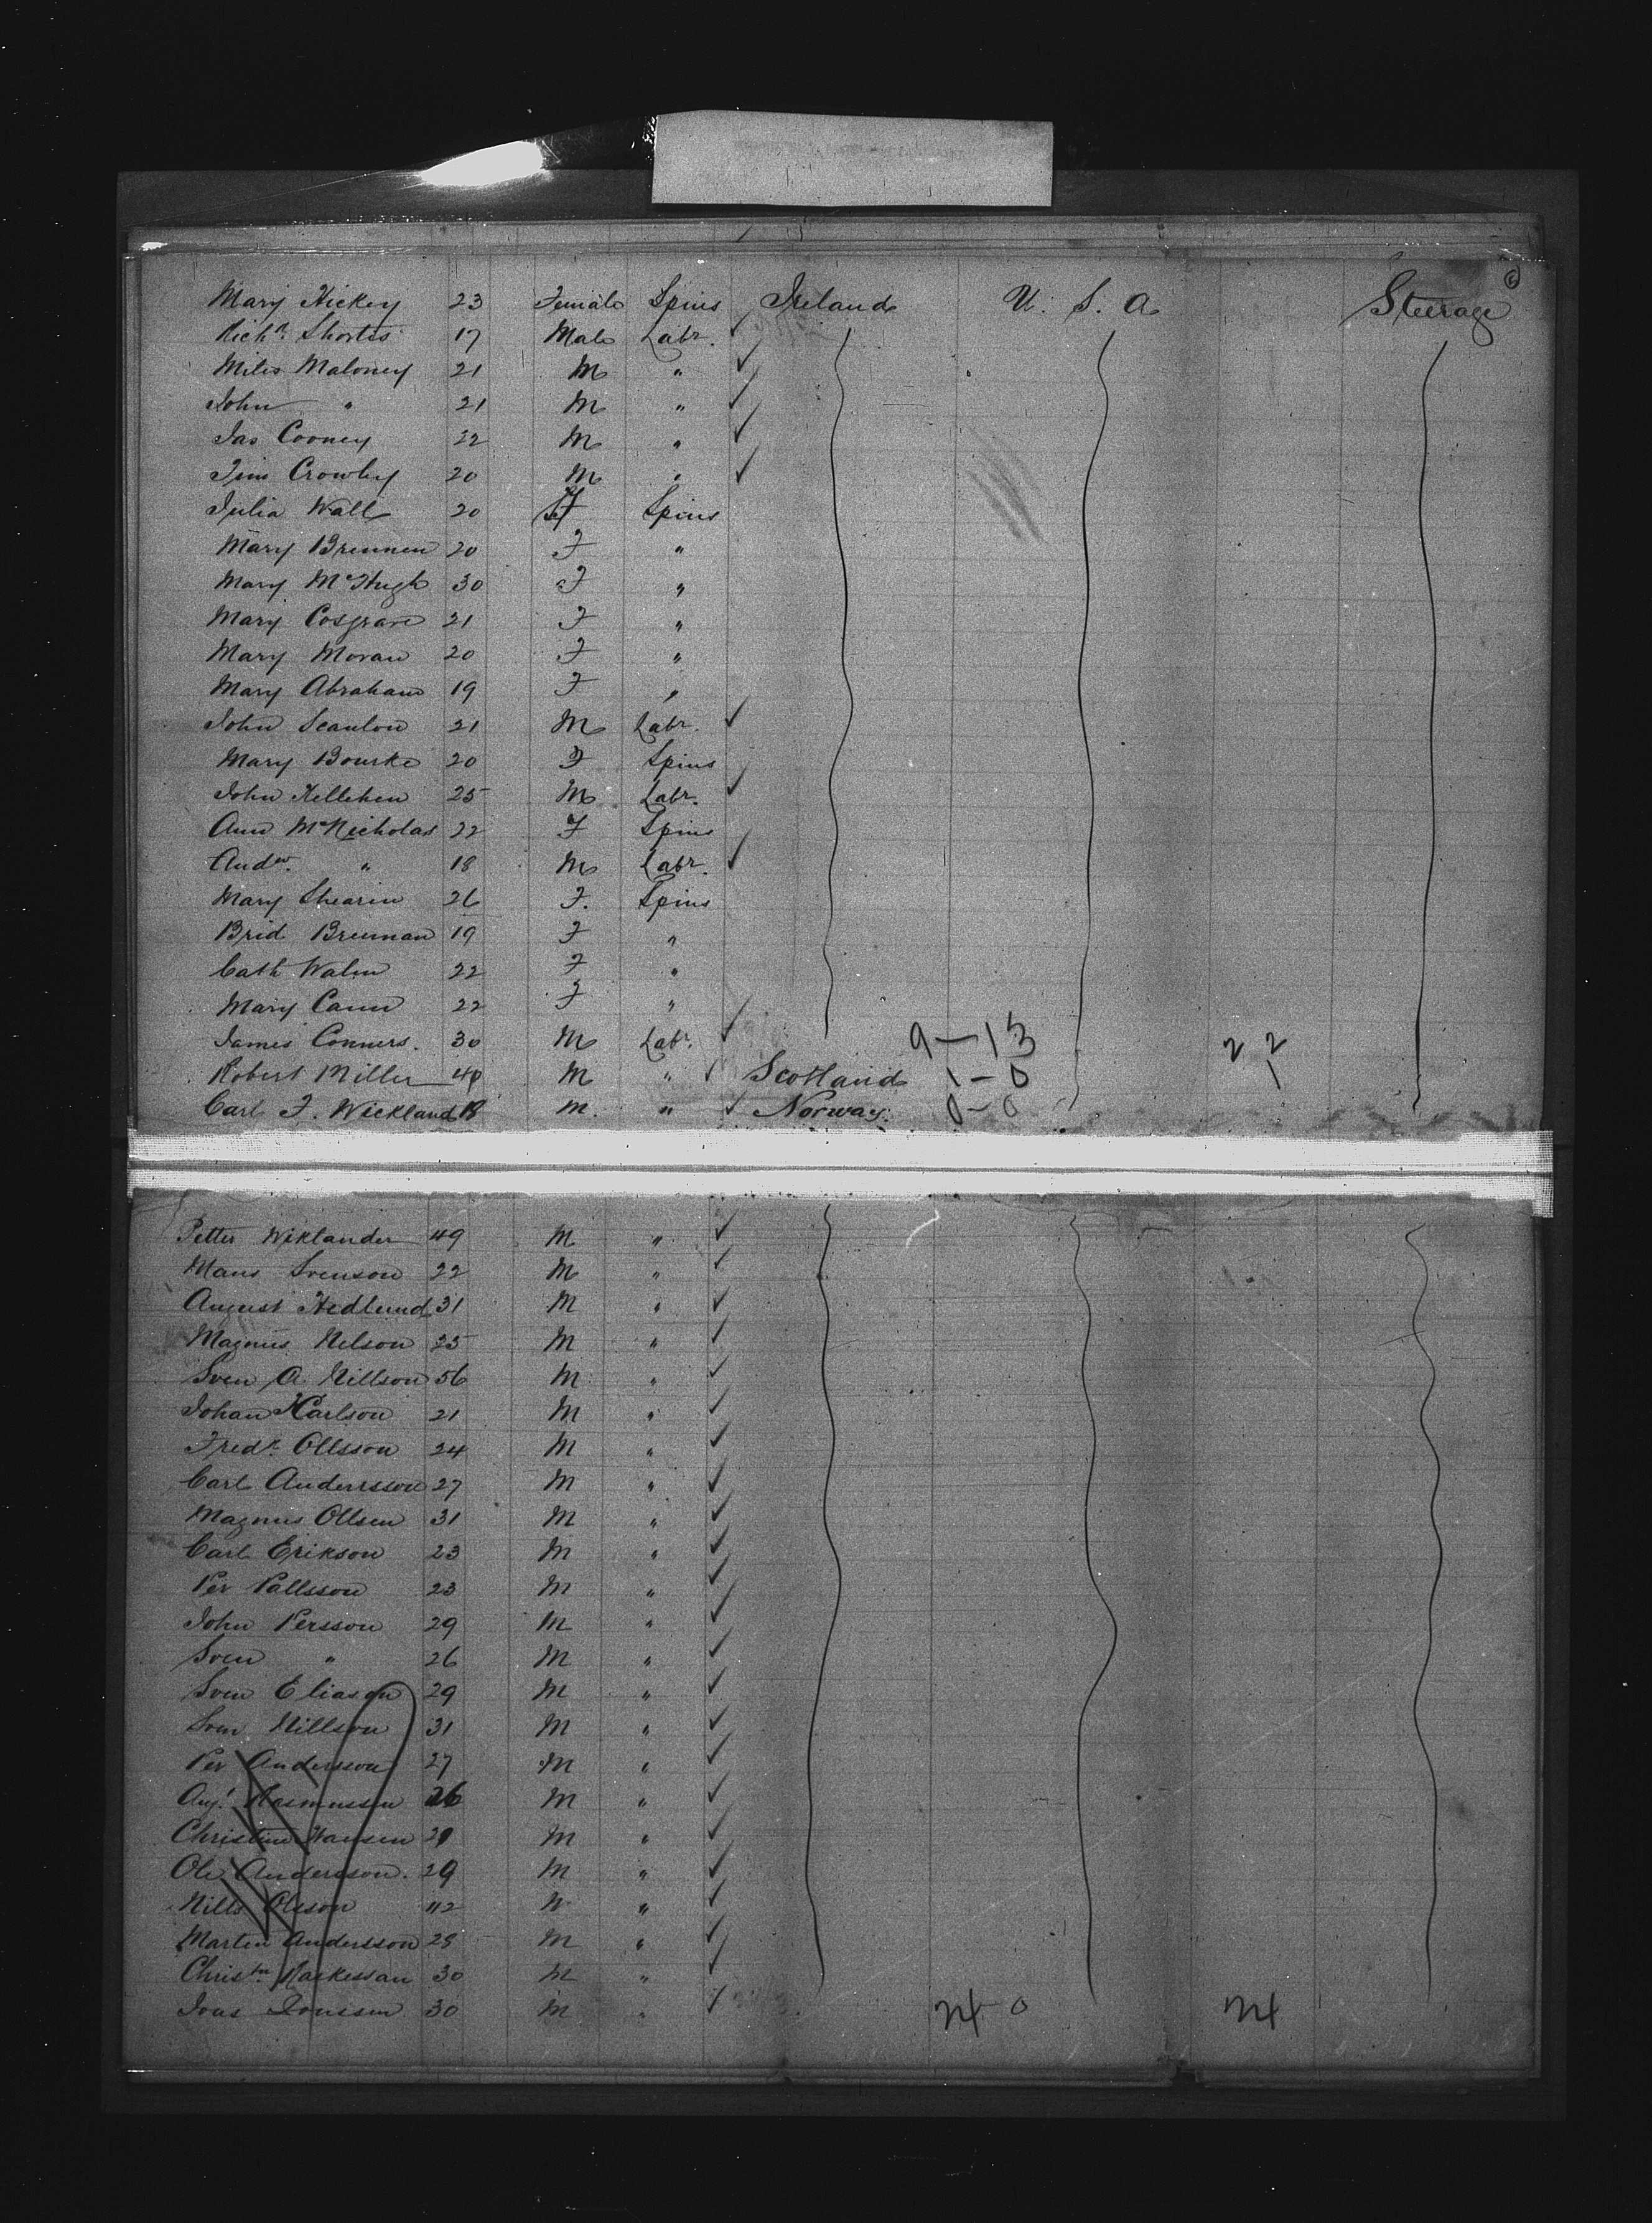 6
Mary Hickey 23 Female Spins Ireland U. S. A Steerage
Richd. Shortis 17 Male Labr.
Miles Maloney 21 M "
John " 21 M "
Jas Cooney 22 M "
Tim Crowley 20 M "
Julia Wall 20 F Spins
Mary Brennen 20 F "
Mary McHugh 30 F "
Mary Cosgrave 21 F "
Mary Moran 20 F "
Mary Abraham 19 F "
John Scanlon 21 M Labr.
Mary Bourke 20 F Spins
John Kellehen 25 M Labr.
Ann McNicholas 22 F Spins
Andw. " 18 M Labr.
Mary Shearin 26 F. Spins
Brid Brennan 19 F "
Cath Walsn 22 F "
Mary Cann 22 F "
James Conners. 30 M Labr. 9-13 22
Robert Miller 40 M " Scotland 1-0 1
Carl F. Wickland 18 M. " Norway. 0-0
Petter Wiklander 49 M "
Mans Svenson 22 M "
August Hedlund 31 M "
Magnus Nelson 25 M "
Sven A. Nillson 56 M "
Johan Karlson 21 M "
Fredk. Ollsson 24 M "
Carl Anderrsson 27 M "
Magnus Ollsen 31 M "
Carl Erikson 23 M "
Per Pallsson 23 M "
John Persson 29 M "
Sven " 26 M "
Sven Eliason 29 M "
Sven Nillson 31 M "
Per Andersson 27 M "
Augt. Rasmussen 26 M "
Christian Hansen 21 M "
Ole Andersson. 29 M "
Nills Olesen 42 M "
Martin Andersson 25 M "
Christn 30 M "
Jonssen 30 M " 24 0 24